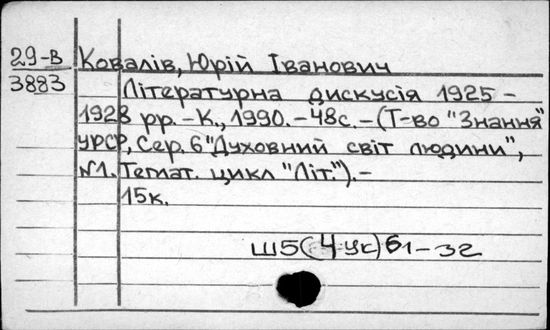 29-В Ковалів, Юрій Іванович
3883
Літературна дискусія 1925 -
1928 рр. - К., 1990. - 48с. - (Т-во "Знання"
УРСР, Сер. 6 "Духовний світ людини",
№1. Темат. цикл "Літ."). -
15к.
Ш5(4Ук)61-32